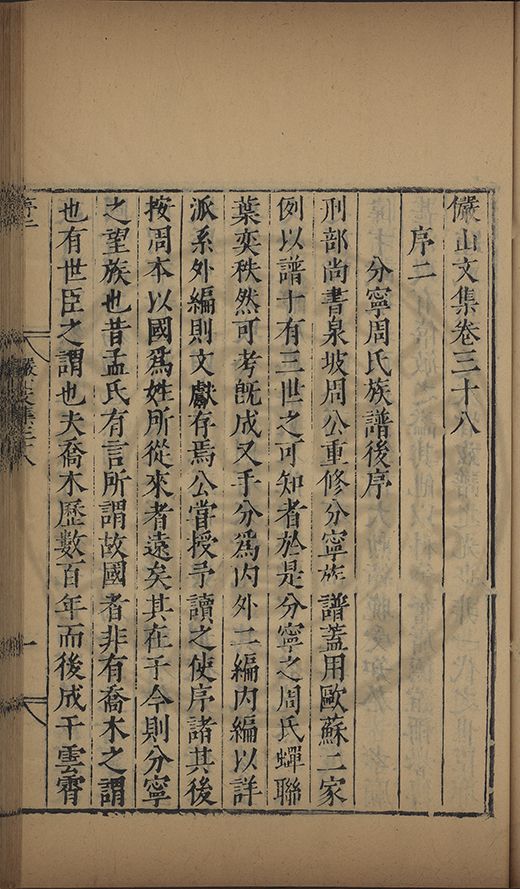 儼山文集卷三十八
序二
分寧周氏族譜後序
刑部尚書泉坡周公重修分寧族譜蓋用歐蘇二家
例以譜十有三世之可知者於是分寧之周氏蟬聯
葉奕秩然可考旣成又手分爲内外二編内編以詳
派系外編則文獻存焉公嘗授予讀之使序諸其後
按周本以國爲姓所從來者遠矣其在于今則分寧
之望族也昔孟氏有言所謂故國者非有喬木之謂
也有世臣之謂也夫喬木歷數百年而後成干雲霄